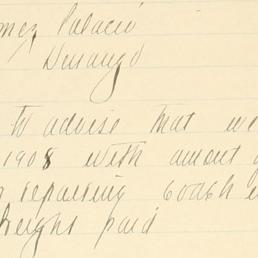 mez Palacio
Durango
to advise that we
1908 with amont
repairing coach
freight paid